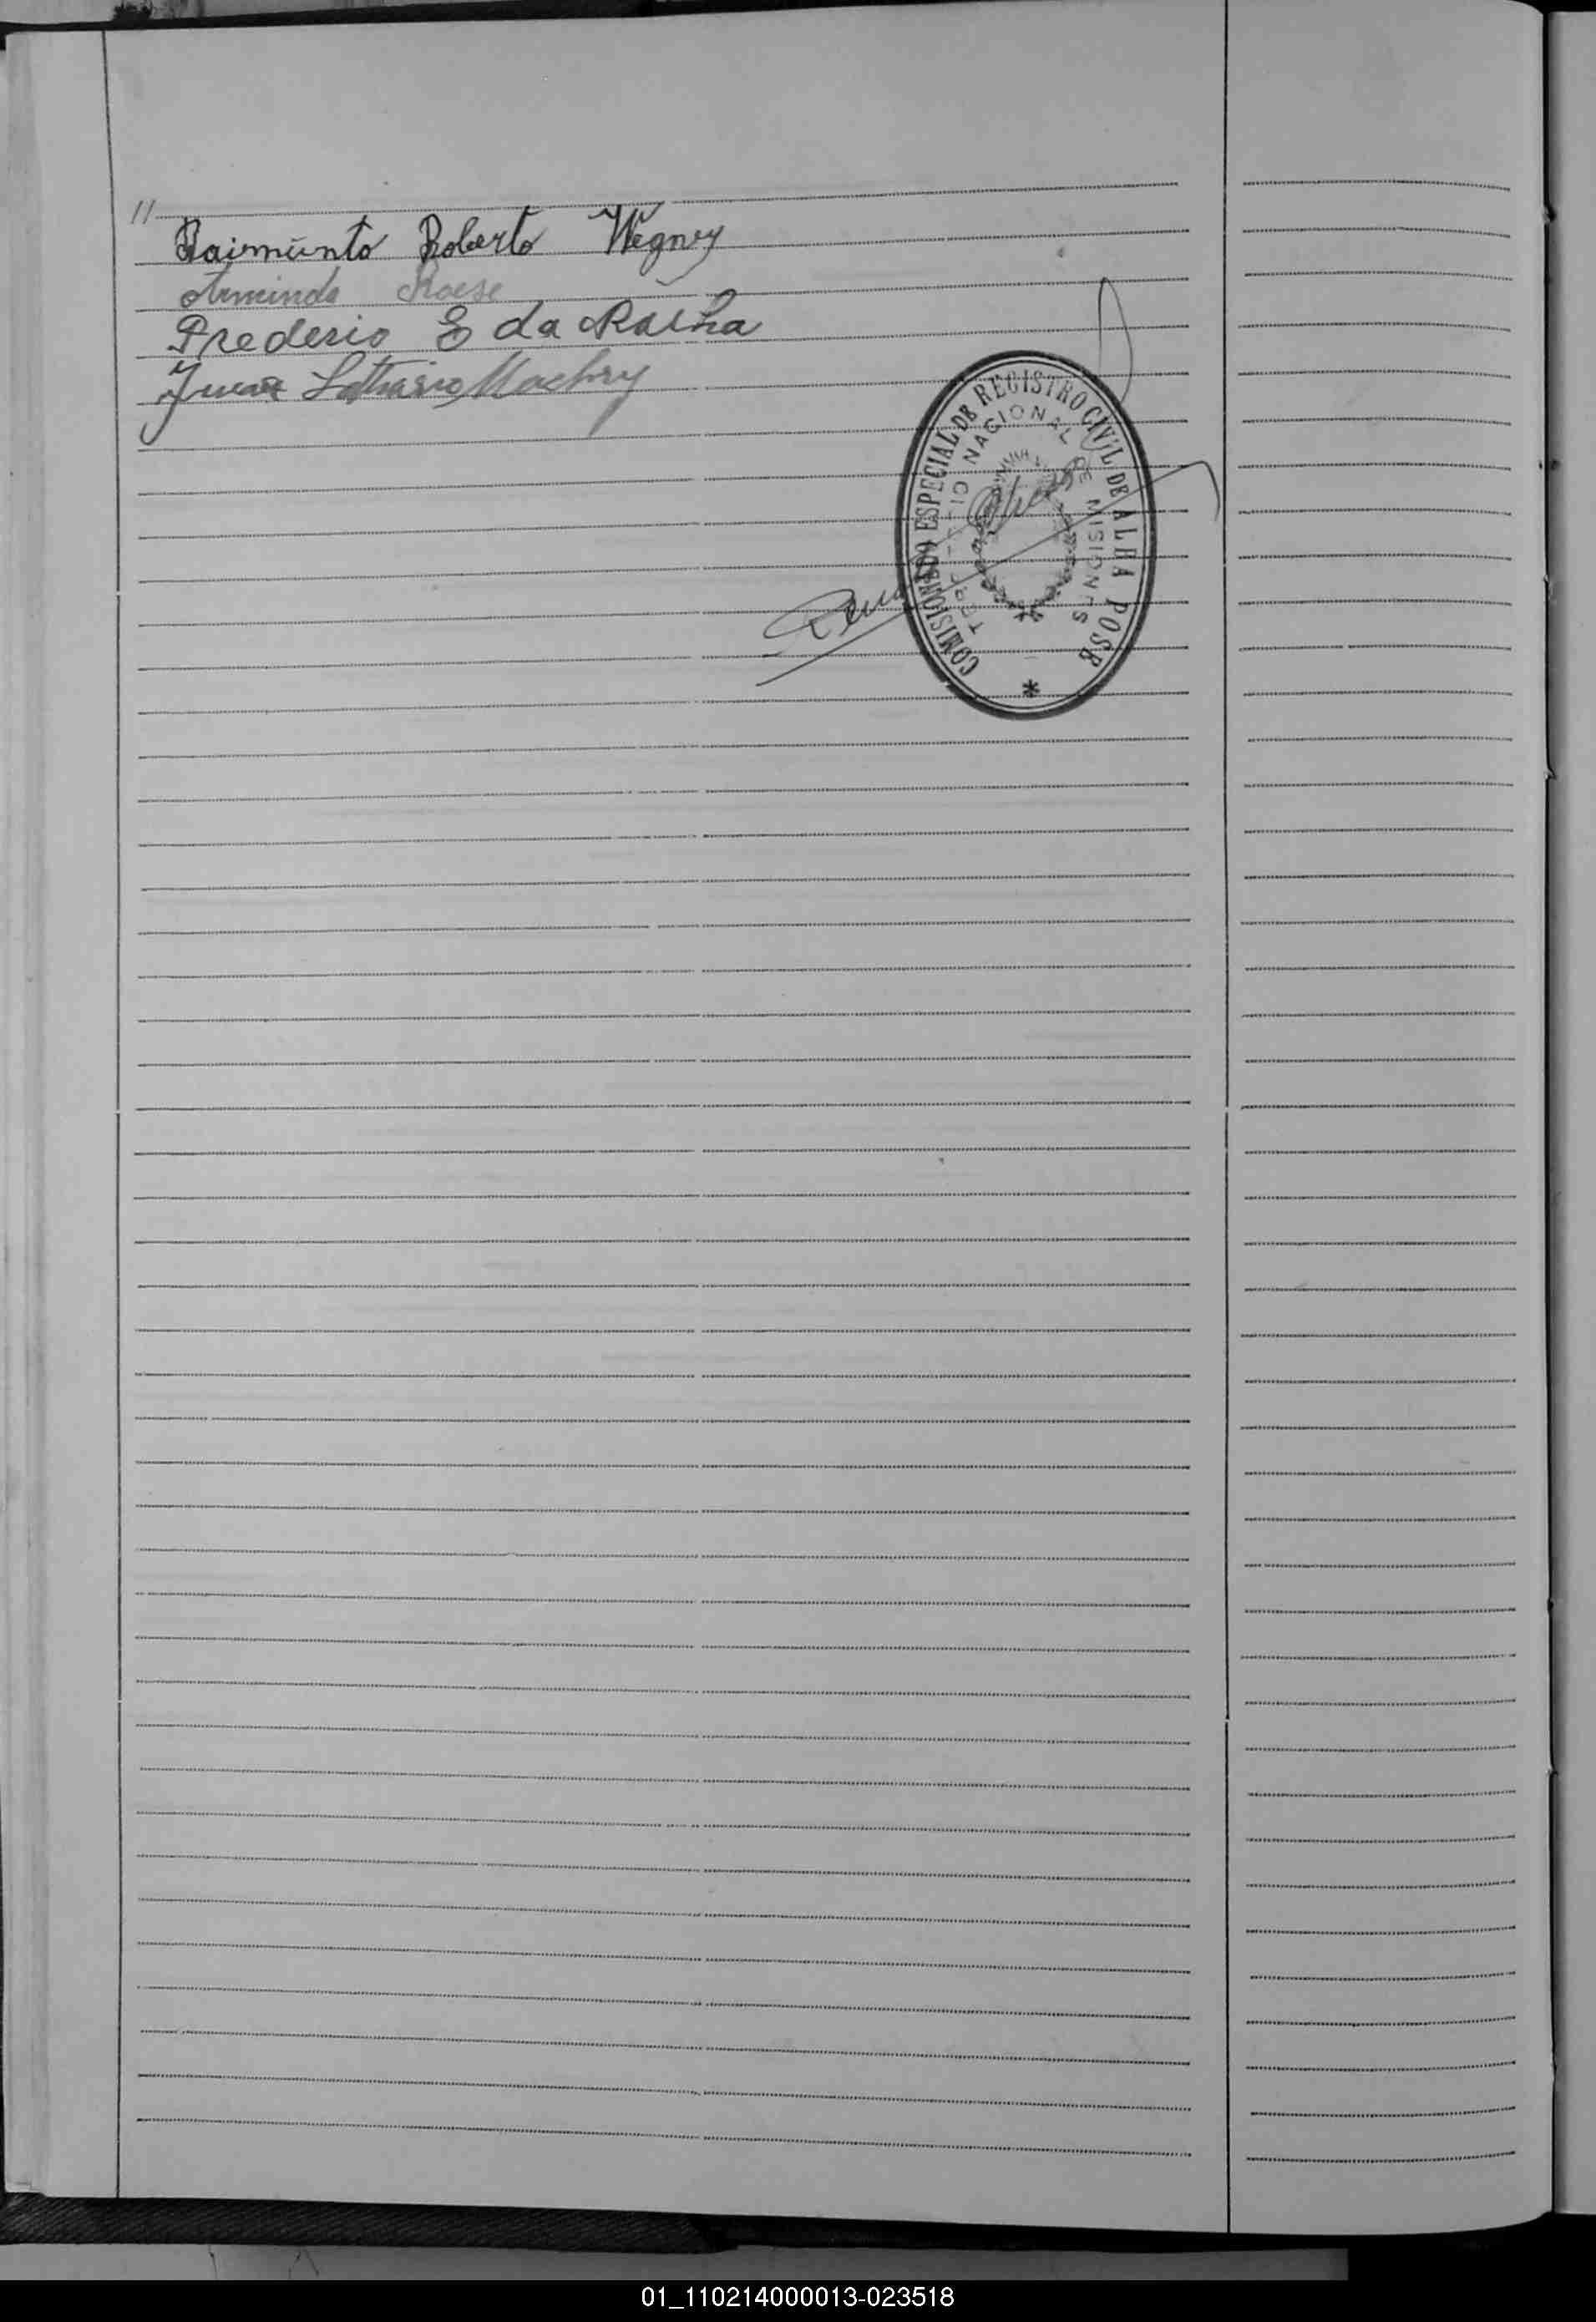 //
Raimunto Roberto Wegner
Arminda Roese
Frederico E da Rocha
Juan Lothario Machry
COMISIONADO ESPECIAL DE REGISTRO CIVIL DE ALBA POSE
TERRITORIO NACIONAL DE MISIONES
*
01_110214000013-023518